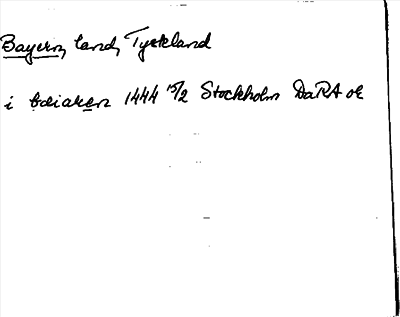 Bayern, land, Tyskland
i bæiaren 1444 15/2 Stockholm DaRA or